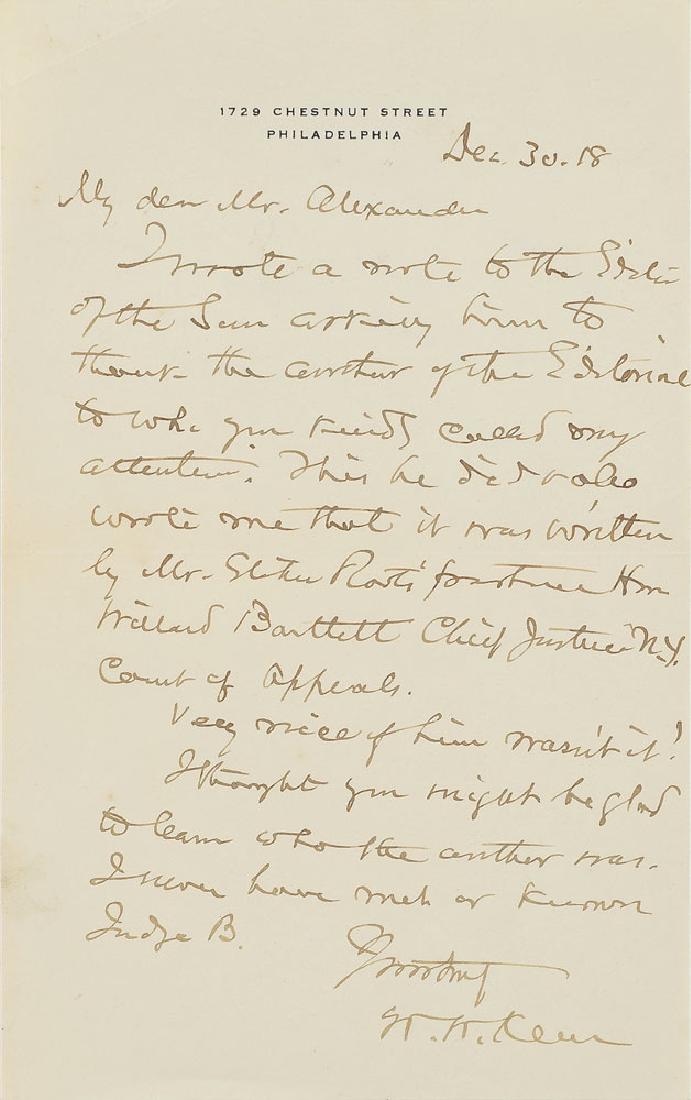 1729 CHESTNUT STREET
PHILADELPHIA
Dec. 30. 18
My dear Mr. Alexander
I wrote a note to the Editor
of the Sun asking him to
thank the author of the Editorial
to wh. you kindly called my
attention. This he did & also
wrote me that it was written
by Mr. Elihu Root's partner Hon
Willard Bartlett Chief Justice N.Y.
Court of Appeals.
Very nice of him wasn't it!
I thought you might be glad
to learn who the author was.
I never have met or known
Judge B.
Yours truly
W. W. Keen